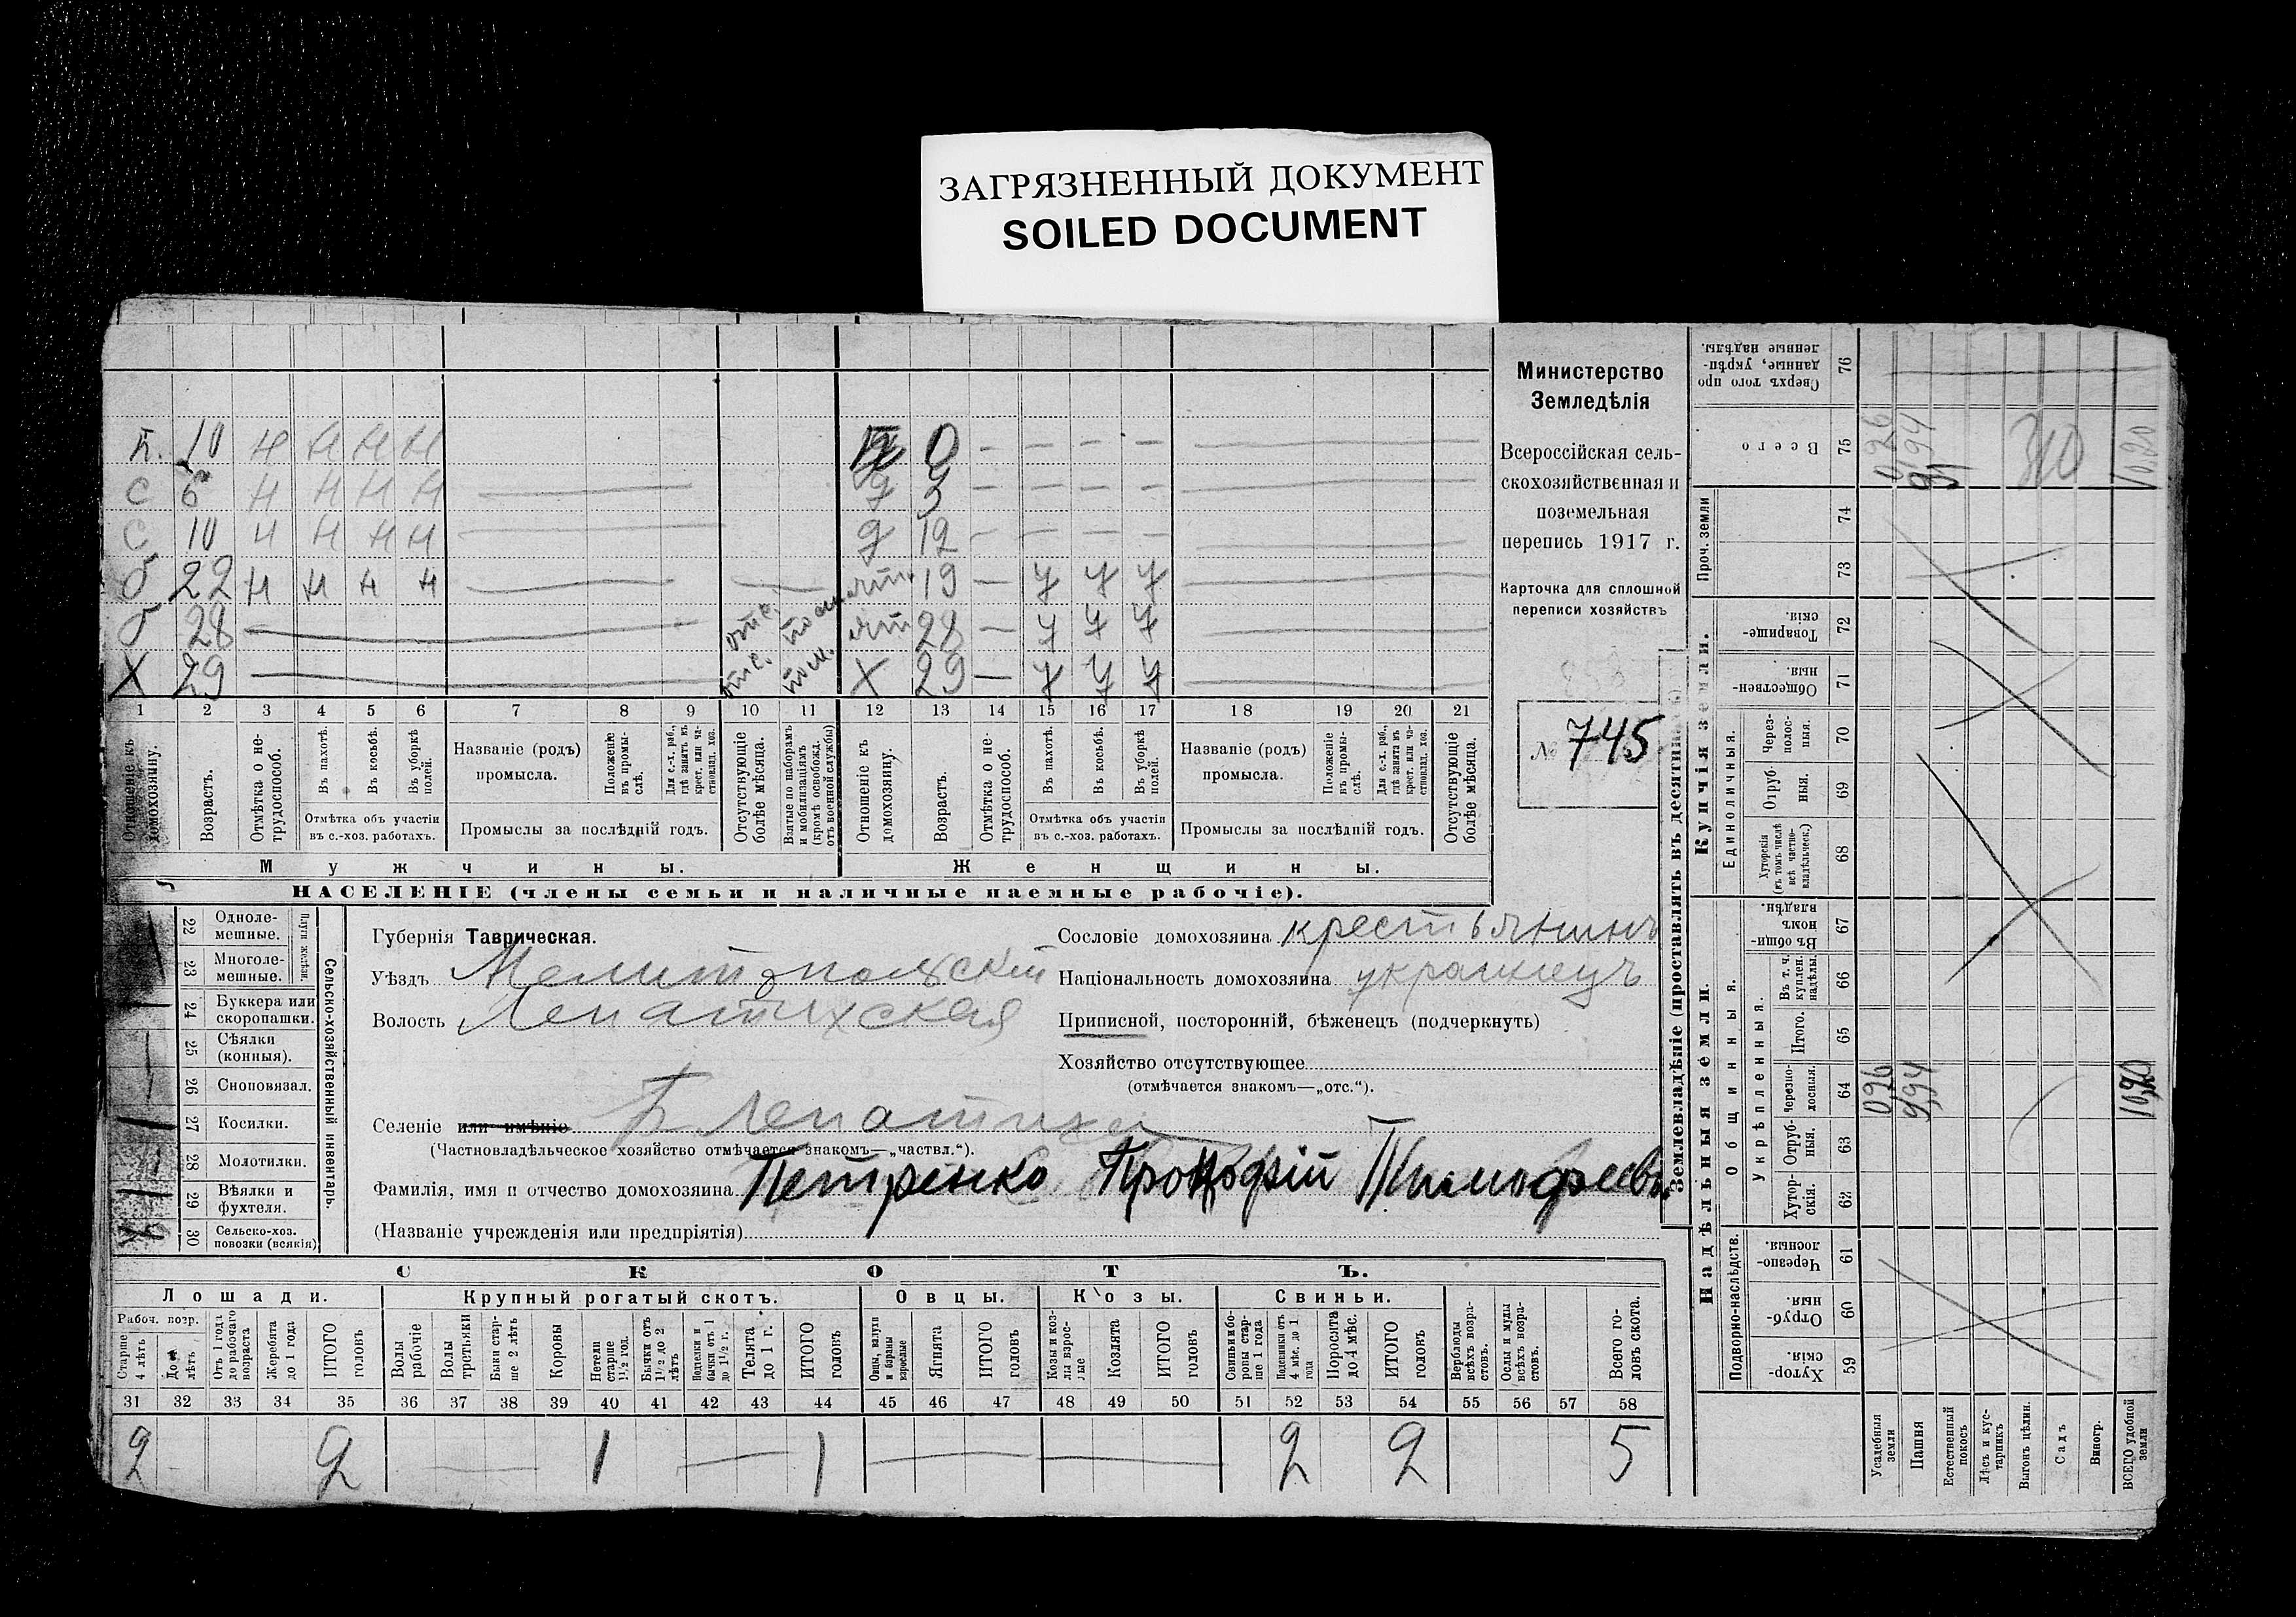 ЗАГРЯЗНЕННЫЙ ДОКУМЕНТ
SOILED DOCUMENT
Министерство
Земледѣлія
Всероссійская сель-
скохозяйственная и
поземельная
перепись 1917 г.
Карточка для сплошной
переписи хозяйствъ
№ 745
10 Н Н Н Н 0 - - - -
с 6 Н Н Н Н
с 10 Н Н Н Н д 12 - - - -
б 22 Н Н Н Н 19 — у у у
28 отс. 28 — у у у
Х 29 отс. Х 29 — у у у
1 2 3 4 5 6 7 8 9 10 11 12 13 14 15 16 17 18 19 20 21
Отношеніе къ домохозяину.
Возрастъ.
Отмѣтка о не-трудоспособ.
Въ пахотѣ.
Въ косьбѣ.
Въ уборкѣ полей.
Отмѣтка объ участіи въ с.-хоз. работахъ.
Названіе (родъ) промысла.
Положеніе въ промы-слѣ.
Для с.-х. раб., гдѣ занятъ въ крест. или ча-стновлад. хоз.
Промыслы за послѣдній годъ.
Отсутствующіе болѣе мѣсяца.
Взятые по наборамъ и мобилизаціямъ (кромѣ освобожд. отъ военной службы)
Отношеніе къ домохозяину.
Возрастъ.
Отмѣтка о не-трудоспособ.
Въ пахотѣ.
Въ косьбѣ.
Въ уборкѣ полей.
Отмѣтка объ участіи въ с.-хоз. работахъ.
Названіе (родъ) промысла.
Положеніе въ промы-слѣ.
Для с.-х. раб., гдѣ занята въ крест. или ча-стновлад. хоз.
Промыслы за послѣдній годъ.
Отсутствующіе болѣе мѣсяца.
Мужчины. Женщины.
НАСЕЛЕНІЕ (члены семьи и наличные наемные рабочіе).
22 Одноле-мешные.
23 Многоле-мешные.
Плуги желѣзн.
24 Буккера или скоропашки.
25 Сѣялки (конныя).
26 Сноповязал.
27 Косилки.
28 Молотилки.
29 Вѣялки и фухтеля.
30 Сельско-хоз. повозки (всякія)
Сельско-хозяйственный инвентарь.
Губернія Таврическая.
Уѣздъ Мелитопольскій
Волость Лепатихская
Селеніе или имѣніе Б Лепатиха
(Частновладѣльческое хозяйство отмѣчается знакомъ—„частвл.“).
Фамилія, имя и отчество домохозяина Петренко Прокофій Тимофеевъ
(Названіе учрежденія или предпріятія)
Сословіе домохозяина крестьянинъ
Національность домохозяина украинецъ
Приписной, посторонній, бѣженецъ (подчеркнуть)
Хозяйство отсутствующее
(отмѣчается знакомъ—„отс.“).
СКОТЪ.
Лошади. Крупный рогатый скотъ. Овцы. Козы. Свиньи.
Рабоч. возр.
Старше 4 лѣтъ
До 4 лѣтъ
Отъ 1 года до рабочаго возраста
Жеребята до 1 года
ИТОГО головъ
Волы рабочіе
Волы третьяки
Быки стар-ше 2 лѣтъ
Коровы
Нетели старше 1½ год.
Бычки отъ 1½ до 2 лѣтъ
бычки отъ 1 до 1½ г.
Телята до 1 г.
ИТОГО головъ
Овцы, валухи и бараны взрослые
Ягнята
ИТОГО головъ
Козы и коз-лы взрос-лые
Козлята
ИТОГО головъ
Свиньи бо-ровы стар-ше 1 года
Подсвинки отъ 4 мѣс. до 1 года
Поросята до 4 мѣс.
ИТОГО головъ
Верблюды всѣхъ возра-стовъ.
Ослы и мулы всѣхъ возра-стовъ.
Всего го-ловъ скота.
31 32 33 34 35 36 37 38 39 40 41 42 43 44 45 46 47 48 49 50 51 52 53 54 55 56 57 58
2 2 1 1 2 2 5
Землевладѣніе (проставлять въ десятинахъ)
Надѣльныя земли. Купчія земли.
Подворно-наслѣдств.
Общинныя.
Укрѣпленныя.
Единоличныя.
Проч. земли
59 Хутор-скія.
60 Отруб-ныя
61 Черезпо-лосныя.
62 Хутор-скія.
63 Отруб-ныя.
64 Черезпо-лосныя.
65 Итого.
66 Въ т. ч. куплен. надѣлы.
67 Въ общи-номъ владѣн.
68 Хуторскія (въ томъ числѣ всѣ частно-владѣльческ.)
69 Отруб-ныя.
70 Через-полос-ныя.
71 Обществен-ныя.
72 Товарище-скія.
73
74
75 Всего
76 Сверхъ того про-данные, укрѣп-ленные надѣлы.
Усадебныя земли 026 026
Пашня 994
Естественный покосъ
Лѣсъ и кус-тарникъ
Выгонъ цѣлин.
Садъ
Виногр.
ВСЕГО удобной земли 1020 1020